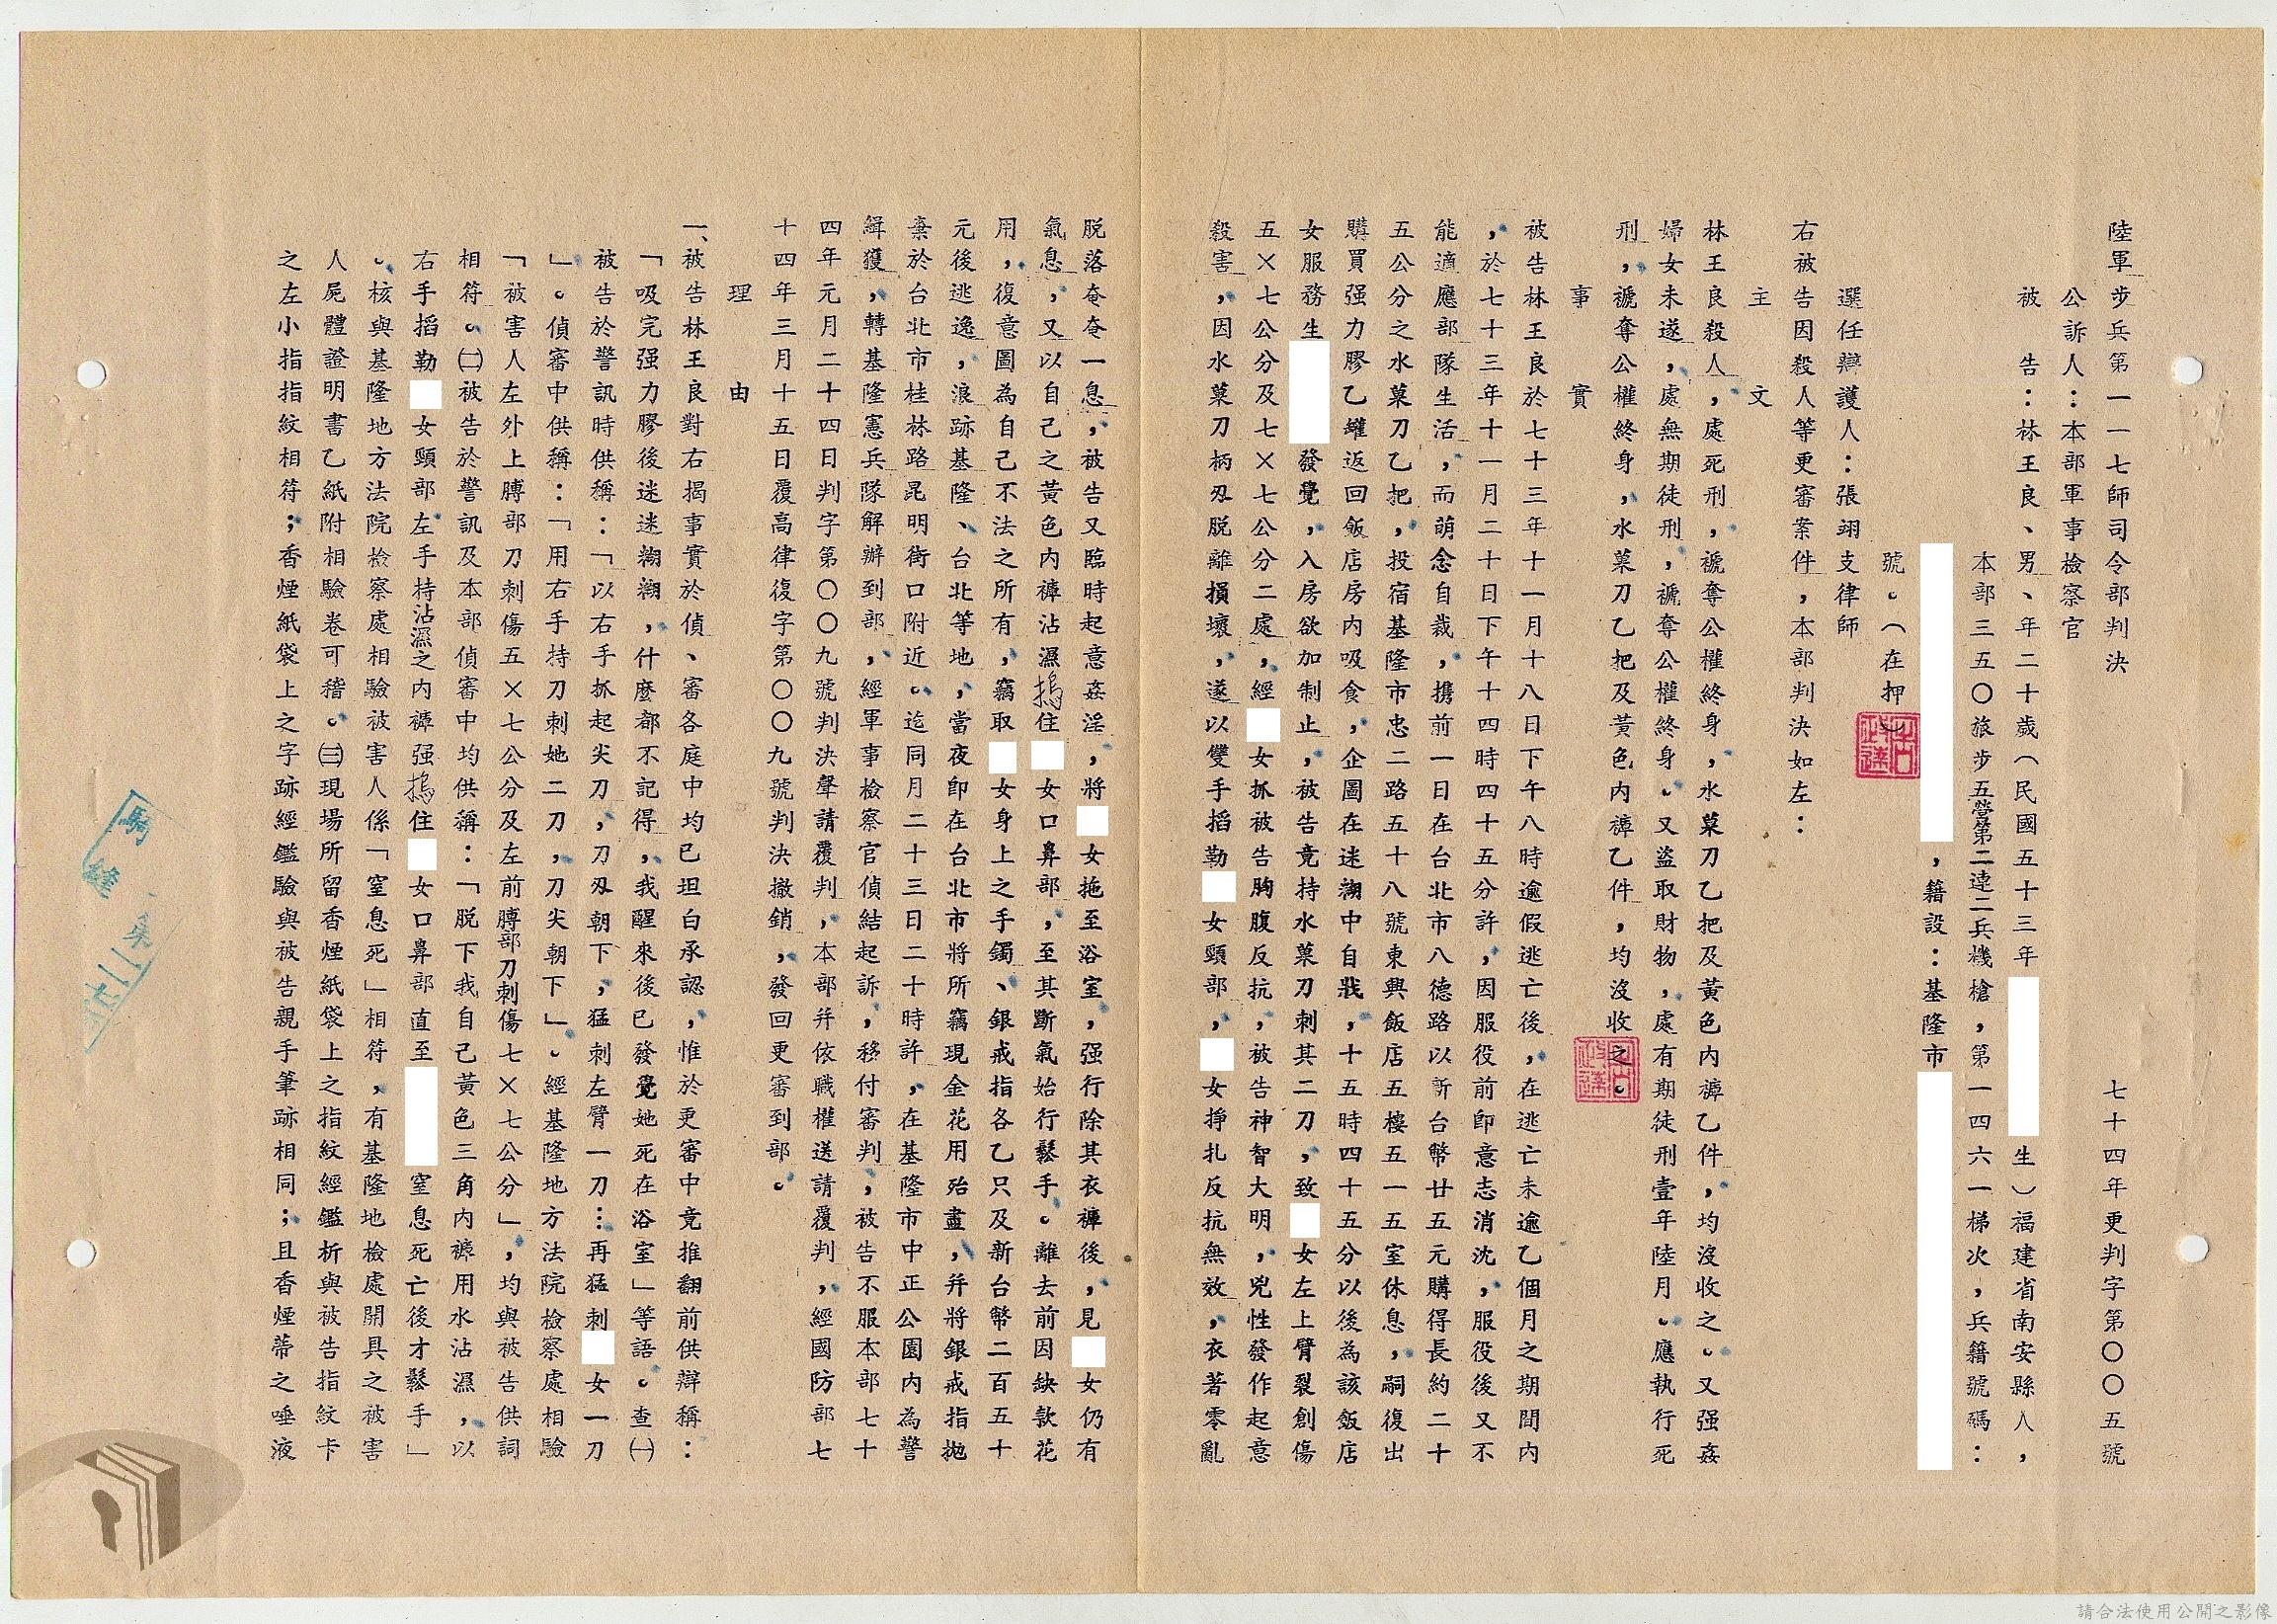 陸軍步兵第一一七師司令部判決　七十四年更判字第〇〇五號
公訴人：本部軍事檢察官
被　告：林王良、男、年二十歲（民國五十三年　生）福建省南安縣人，
本部三五〇旅步五營第二連二兵機槍，第一四六一梯次，兵籍號碼：
，籍設：基隆市
號。（在押）
選任辯護人：張翊支律師
右被告因殺人等更審案件，本部判決如左：
主　文
林王良殺人，處死刑，褫奪公權終身，水菓刀乙把及黃色內褲乙件，均沒收之。又强姦
婦女未遂，處無期徒刑，褫奪公權終身。又盜取財物，處有期徒刑壹年陸月。應執行死
刑，褫奪公權終身，水菓刀乙把及黃色內褲乙件，均沒收之。
事　實
被告林王良於七十三年十一月十八日下午八時逾假逃亡後，在逃亡未逾乙個月之期間內
，於七十三年十一月二十日下午十四時四十五分許，因服役前即意志消沈，服役後又不
能適應部隊生活，而萌念自裁，携前一日在台北市八德路以新台幣廿五元購得長約二十
五公分之水菓刀乙把，投宿基隆市忠二路五十八號東興飯店五樓五一五室休息，嗣復出
購買强力膠乙罐返回飯店房內吸食，企圖在迷糊中自戕，十五時四十五分以後為該飯店
女服務生　發覺，入房欲加制止，被告竟持水菓刀刺其二刀，致　女左上臂裂創傷
五×七公分及七×七公分二處，經　女抓被告胸腹反抗，被告神智大明，兇性發作起意
殺害，因水菓刀柄刄脫離損壞，遂以雙手搯勒　女頸部，　女掙扎反抗無效，衣著零亂
脫落奄奄一息，被告又臨時起意姦淫，將　女拖至浴室，强行除其衣褲後，見　女仍有
氣息，又以自己之黃色內褲沾濕摀住　女口鼻部，至其斷氣始行鬆手。離去前因缺款花
用，復意圖為自己不法之所有，竊取　女身上之手鐲、銀戒指各乙只及新台幣二百五十
元後逃逸，浪跡基隆、台北等地，當夜即在台北市將所竊現金花用殆盡，幷將銀戒指拋
棄於台北市桂林路昆明街口附近。迄同月二十三日二十時許，在基隆市中正公園內為警
緝獲，轉基隆憲兵隊解辦到部，經軍事檢察官偵結起訴，移付審判，被告不服本部七十
四年元月二十四日判字第〇〇九號判決聲請覆判，本部幷依職權送請覆判，經國防部七
十四年三月十五日覆高律復字第〇〇九號判決撤銷，發回更審到部。
理　由
一、被告林王良對右揭事實於偵、審各庭中均已坦白承認，惟於更審中竟推翻前供辯稱：
「吸完强力膠後迷迷糊糊，什麼都不記得，我醒來後已發覺她死在浴室」等語。查㈠
被告於警訊時供稱：「以右手抓起尖刀，刀刄朝下，猛刺左臂一刀…再猛刺　女一刀
」。偵審中供稱：「用右手持刀刺她二刀，刀尖朝下」。經基隆地方法院檢察處相驗
「被害人左外上膊部刀刺傷五×七公分及左前膊部刀刺傷七×七公分」，均與被告供詞
相符。㈡被告於警訊及本部偵審中均供稱：「脫下我自己黃色三角內褲用水沾濕，以
右手搯勒　女頸部左手持沾濕之內褲强摀住　女口鼻部直至　窒息死亡後才鬆手」
。核與基隆地方法院檢察處相驗被害人係「窒息死」相符，有基隆地檢處開具之被害
人屍體證明書乙紙附相驗卷可稽。㈢現場所留香煙紙袋上之指紋經鑑析與被告指紋卡
之左小指指紋相符；香煙紙袋上之字跡經鑑驗與被告親手筆跡相同；且香煙蒂之唾液
騎縫
請合法使用公開之影像